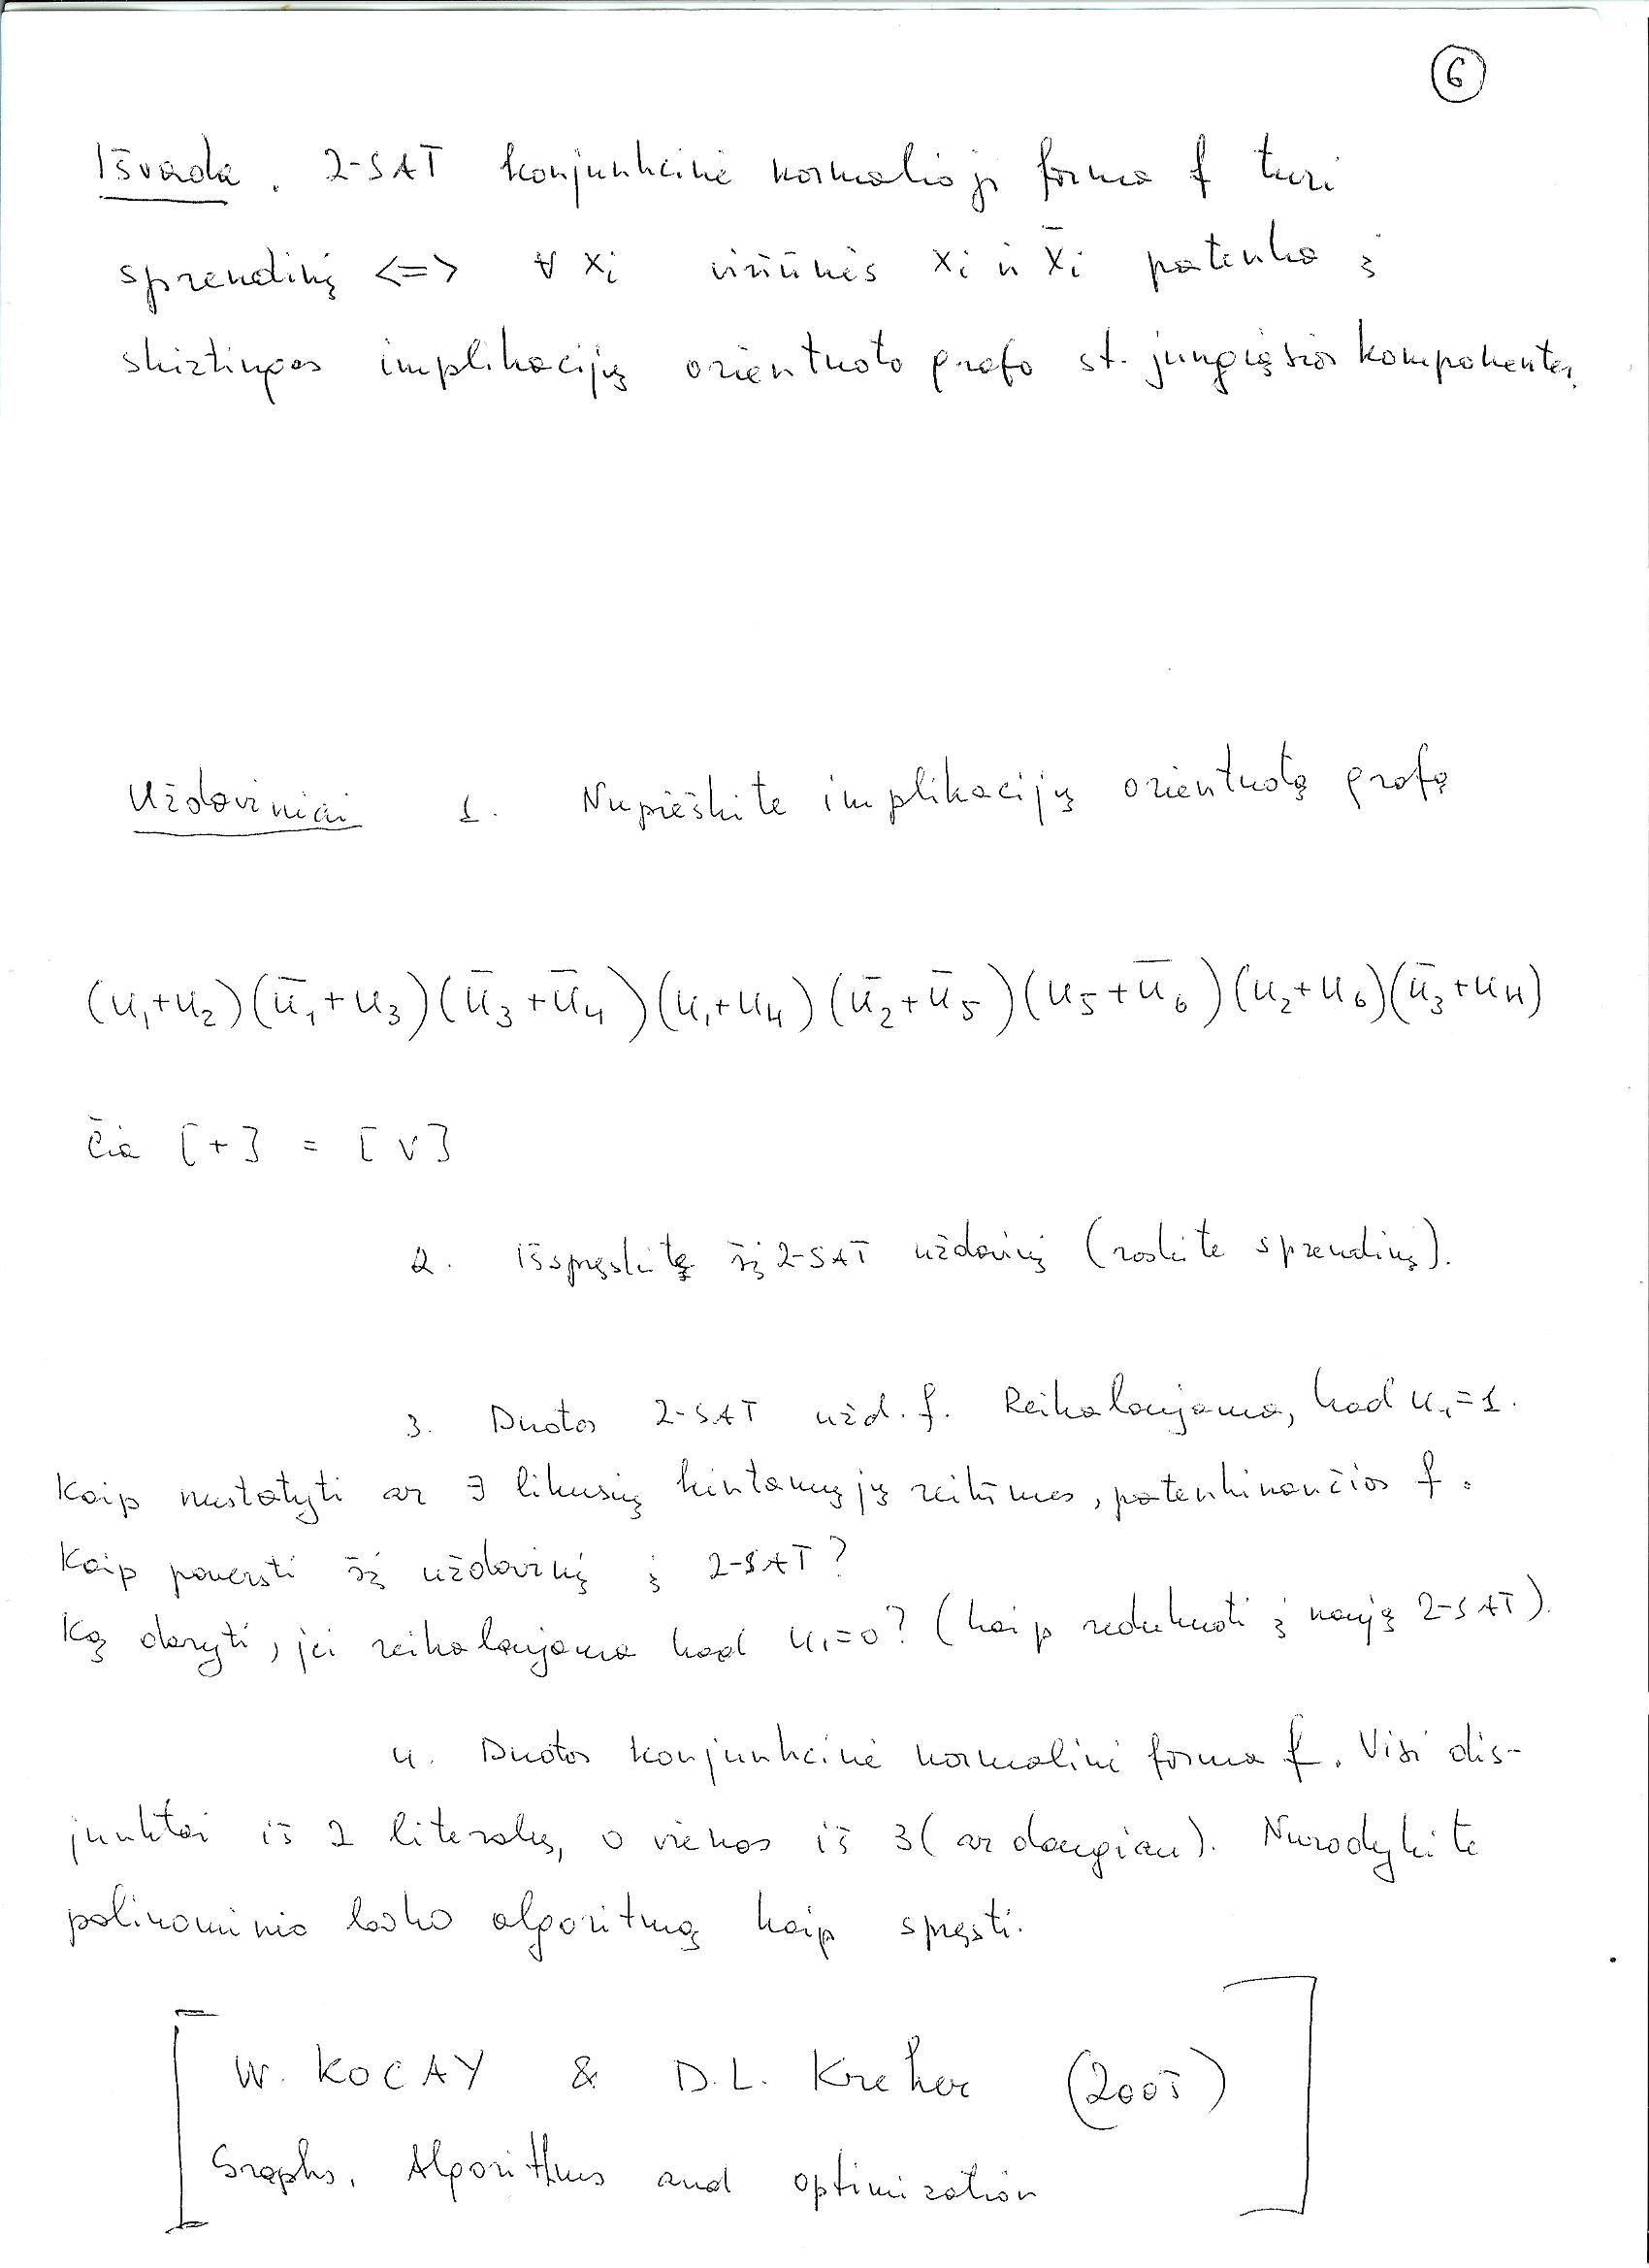 6
Išvada. 2-SAT konjunkcinė normalioji forma f turi
sprendinį <=> ∀ xi viršūnės xi ir x̄i patenka į
skirtingas implikacijų orientuoto grafo st. jungiąsias komponentes.
Uždaviniai 1. Nupieškite implikacijų orientuotą grafą
(u₁+u₂)(ū₁+u₃)(ū₃+ū₄)(u₁+u₄)(ū₂+ū₅)(u₅+ū₆)(u₂+u₆)(ū₃+u₄)
čia [+] = [∨]
2. Išspręskite šį 2-SAT uždavinį (raskite sprendinį).
3. Duotas 2-SAT užd. f. Reikalaujama, kad u₁=1.
Kaip nustatyti ar ∃ likusių kintamųjų reikšmės, patenkinančios f.
Kaip paversti šį uždavinį į 2-SAT?
Ką daryti, jei reikalaujama kad u₁=0? (kaip redukuoti į naują 2-SAT).
4. Duotas konjunkcinė normalinė forma f. Visi dis-
junktai iš 2 literalų, o vienas iš 3 (ar daugiau). Nurodykite
polinominio laiko algoritmą kaip spręsti.
W. KOCAY & D.L. Kreher (2005)
Graphs, Algorithms and optimization